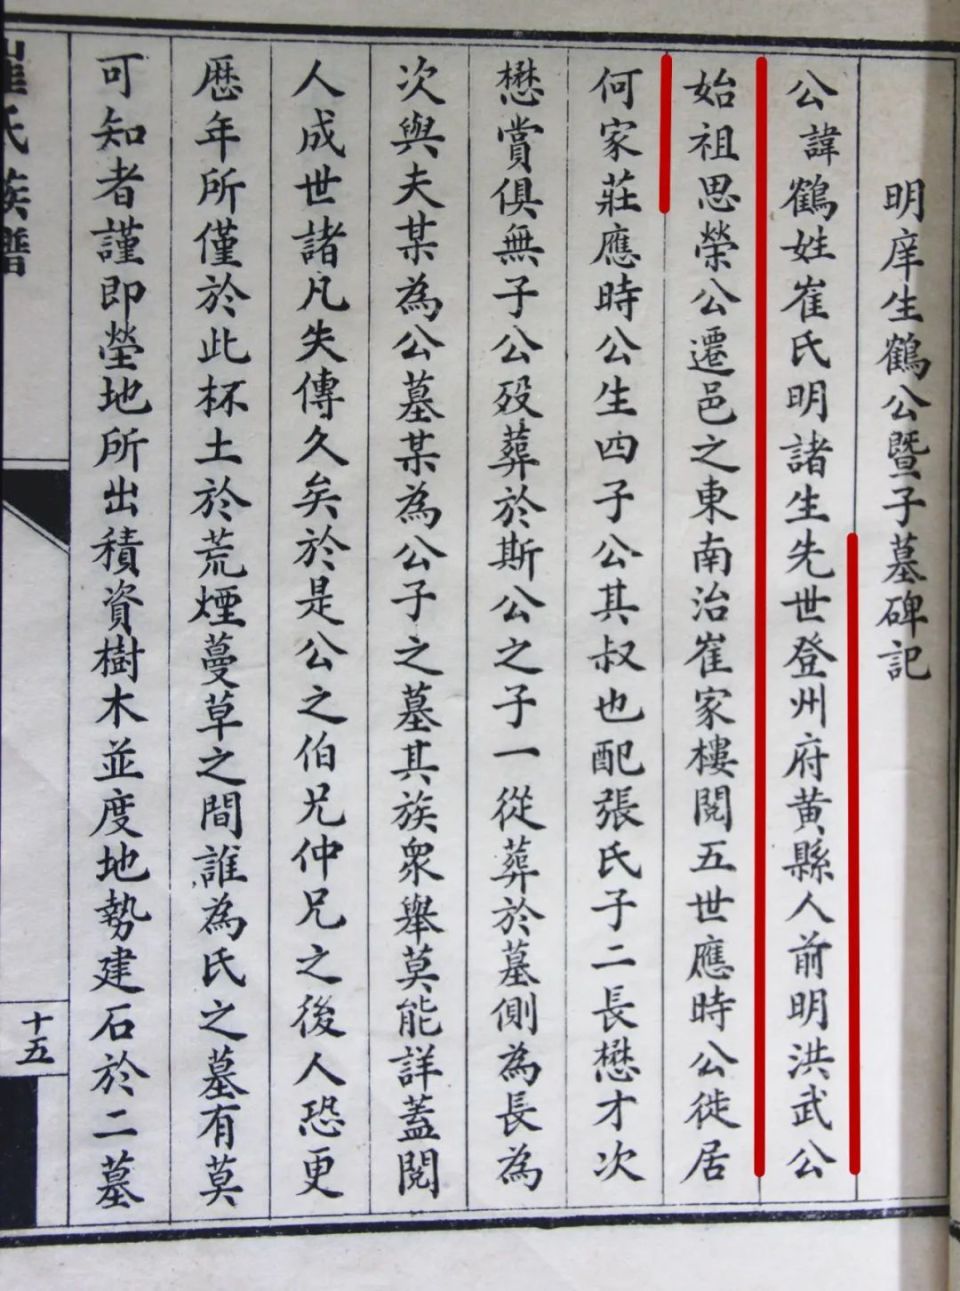 明庠生鶴公暨子墓碑記
公諱鶴姓崔氏明諸生先世登州府黃縣人前明洪武公
始祖思榮公遷邑之東南治崔家樓閱五世應時公徙居
何家莊應時公生四子公其叔也配張氏子二長懋才次
懋賞俱無子公歿葬於斯公之子一從葬於墓側為長為
次與夫某為公墓某為公子之墓其族眾舉莫能詳蓋閱
人成世諸凡失傳久矣於是公之伯兄仲兄之後人恐更
歷年所僅於此杯土於荒煙蔓草之間誰為氏之墓有莫
可知者謹即塋地所出積資樹木並度地勢建石於二墓
崔氏族譜
十五